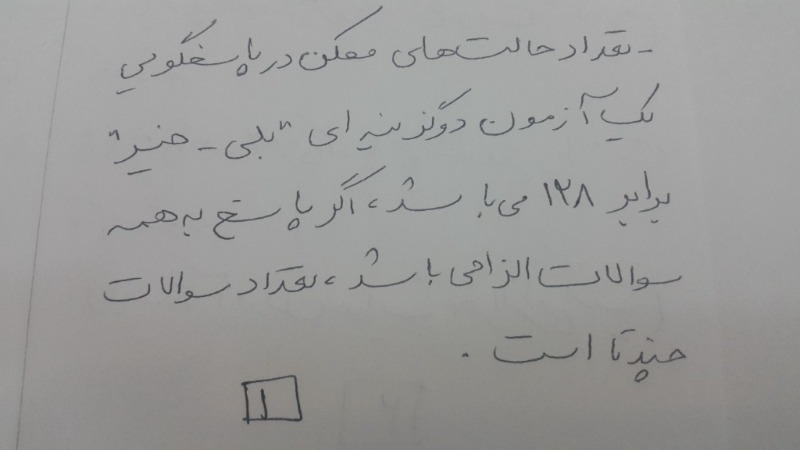 - تعداد حالت‌های ممکن در پاسخگویی
یک آزمون دوگزینه ای "بلی - خیر"
برابر ۱۲۸ می‌باشد، اگر پاسخ به همه
سوالات الزامی باشد، تعداد سوالات
چندتا است.
۱